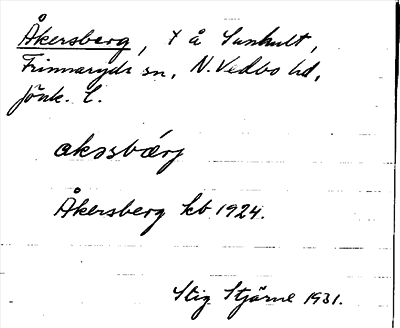 Åkersberg, t å Sunhult,
Frinnaryds sn, N. Vedbo hd,
Jönk. l.
akəsbærj
Åkersberg kb 1924.
Stig Stjärne 1931.